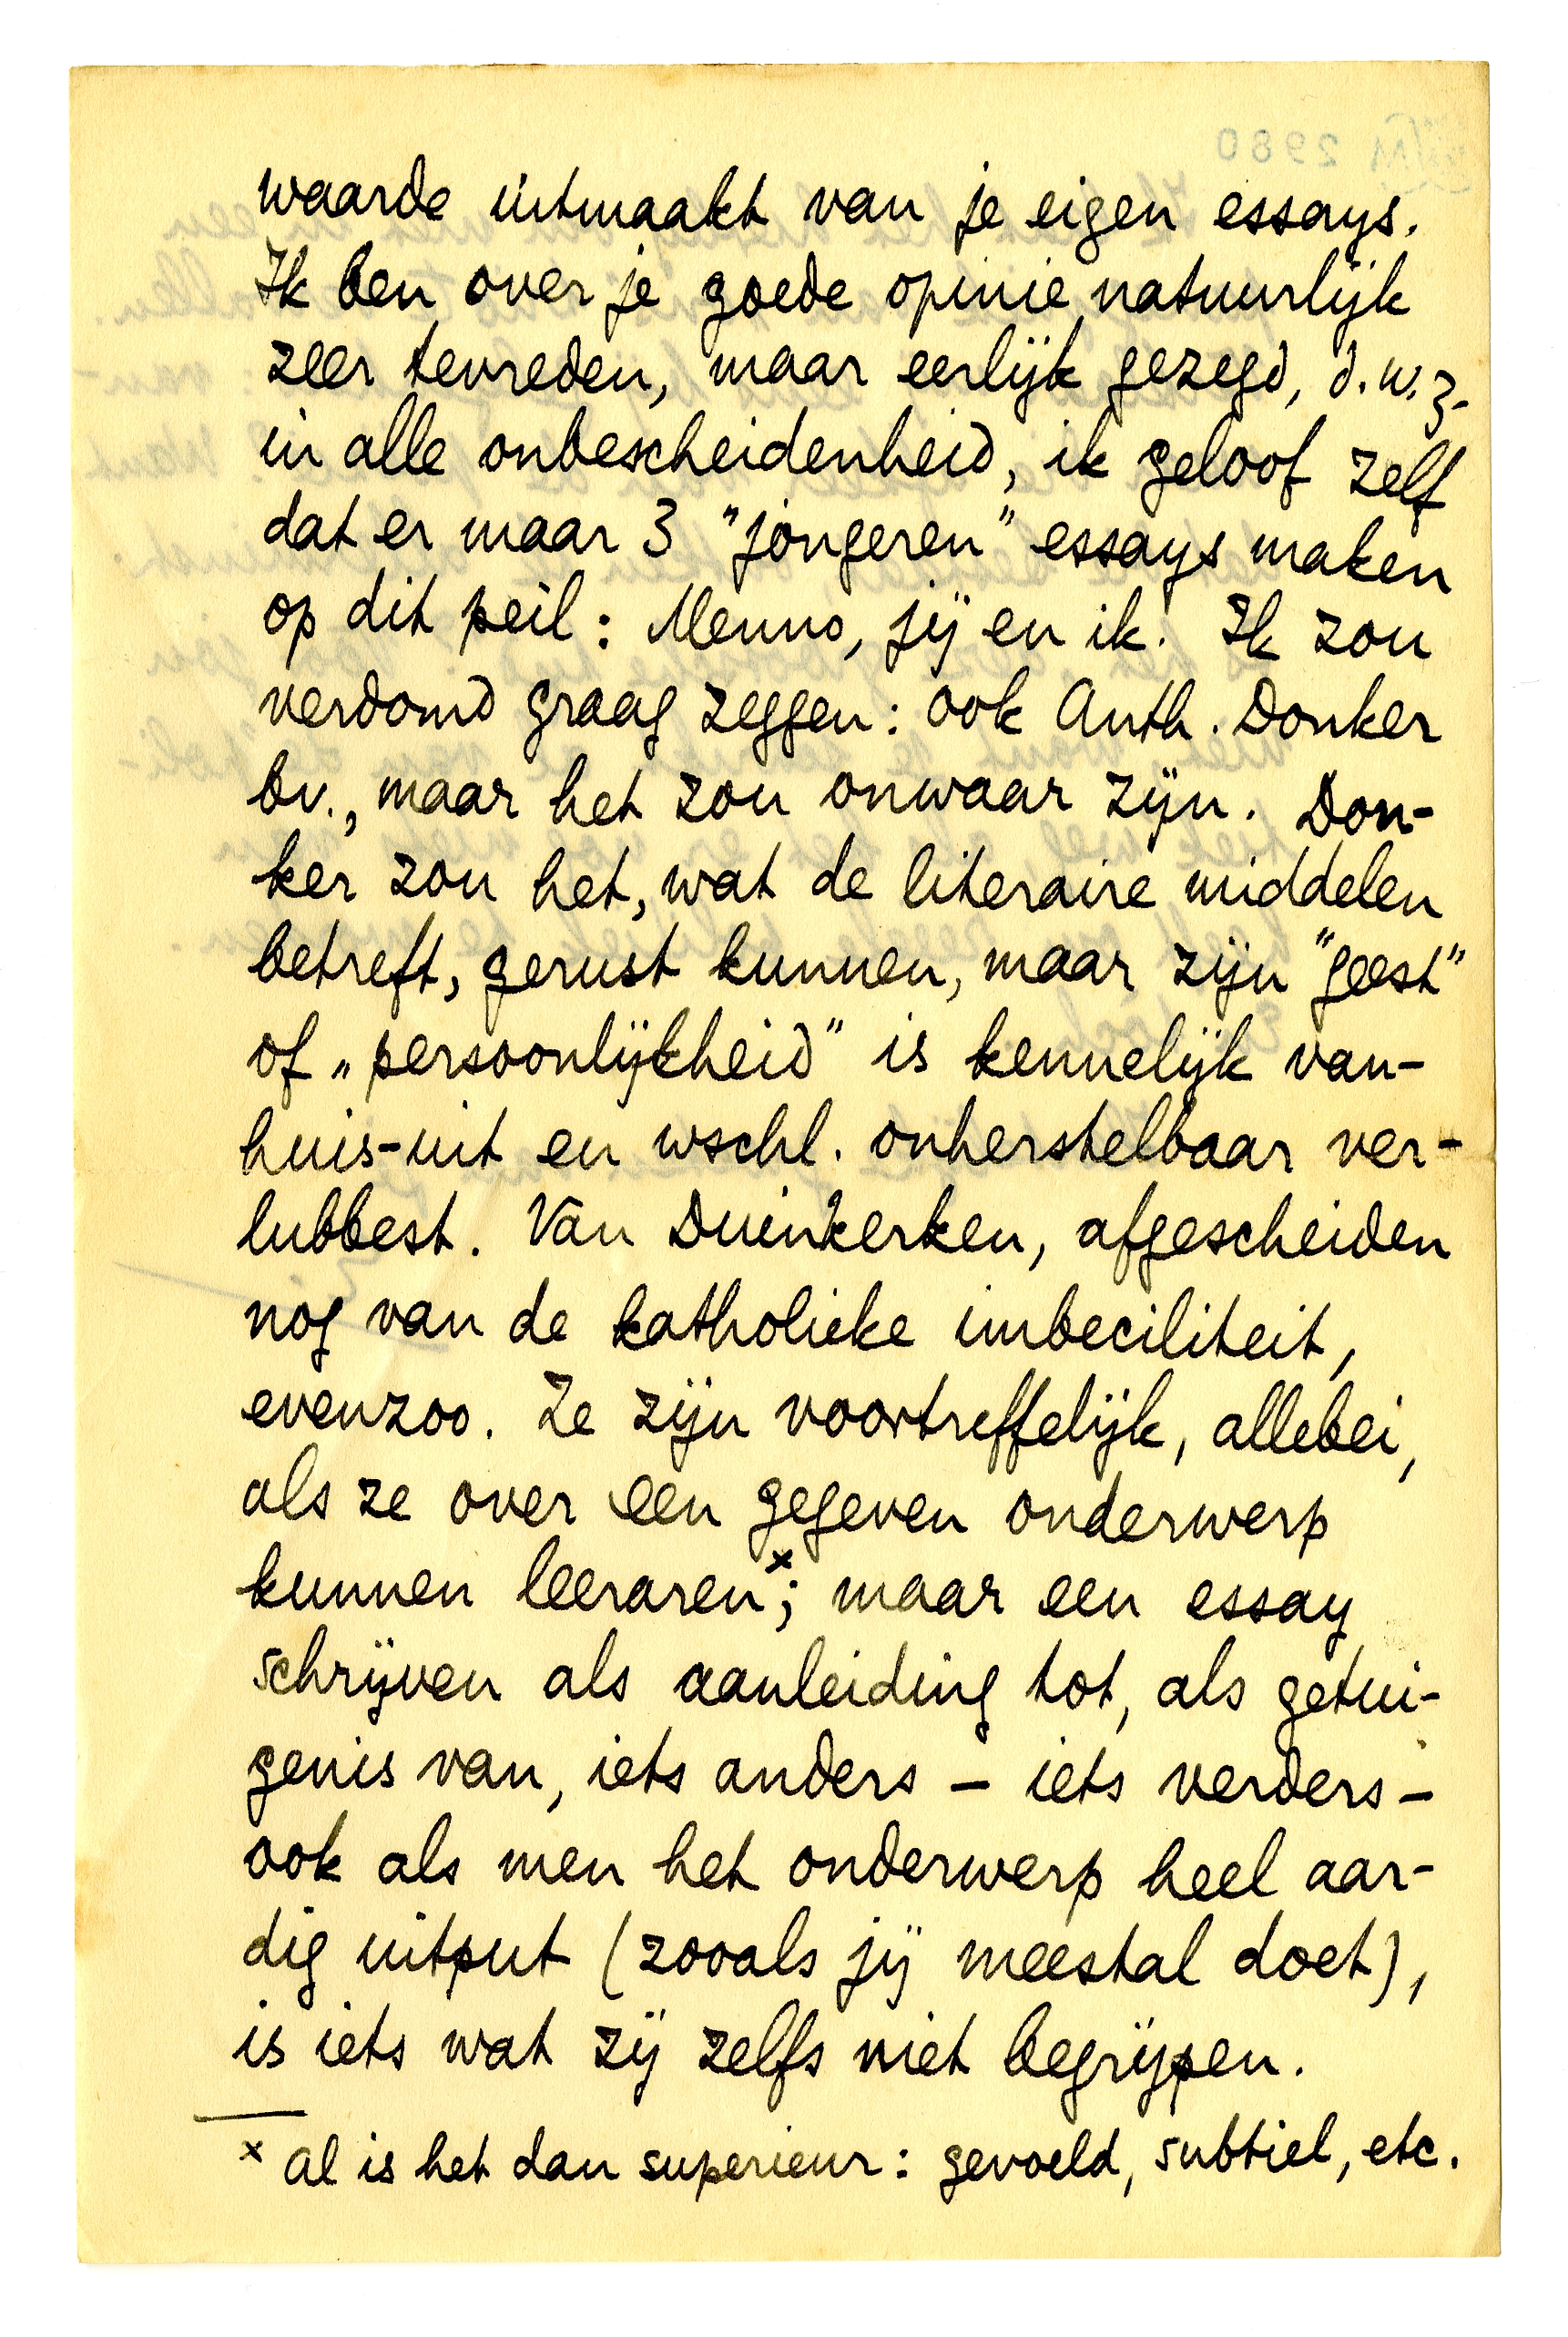 waarde uitmaakt van je eigen essays.
Ik ben over je goede opinie natuurlijk
zeer tevreden, maar eerlijk gezegd, d.w.z.
in alle onbescheidenheid, ik geloof zelf
dat er maar 3 "jongeren" essays maken
op dit peil: Menno, jij en ik. Ik zou
verdomd graag zeggen: ook Anth. Donker
bv., maar het zou onwaar zijn. Don-
ker zou het, wat de literaire middelen
betreft, gerust kunnen, maar zijn "geest"
of „persoonlijkheid" is kennelijk van-
huis-uit en wschl. onherstelbaar ver-
lubbest. Van Duinkerken, afgescheiden
nog van de katholieke imbeciliteit,
evenzoo. Ze zijn voortreffelijk, allebei,
als ze over een gegeven onderwerp
kunnen leeraren×; maar een essay
schrijven als aanleiding tot, als getui-
genis van, iets anders – iets verders –
ook als men het onderwerp heel aar-
dig uitput (zooals jij meestal doet),
is iets wat zij zelfs niet begrijpen.
× al is het dan superieur: gevoeld, subtiel, etc.